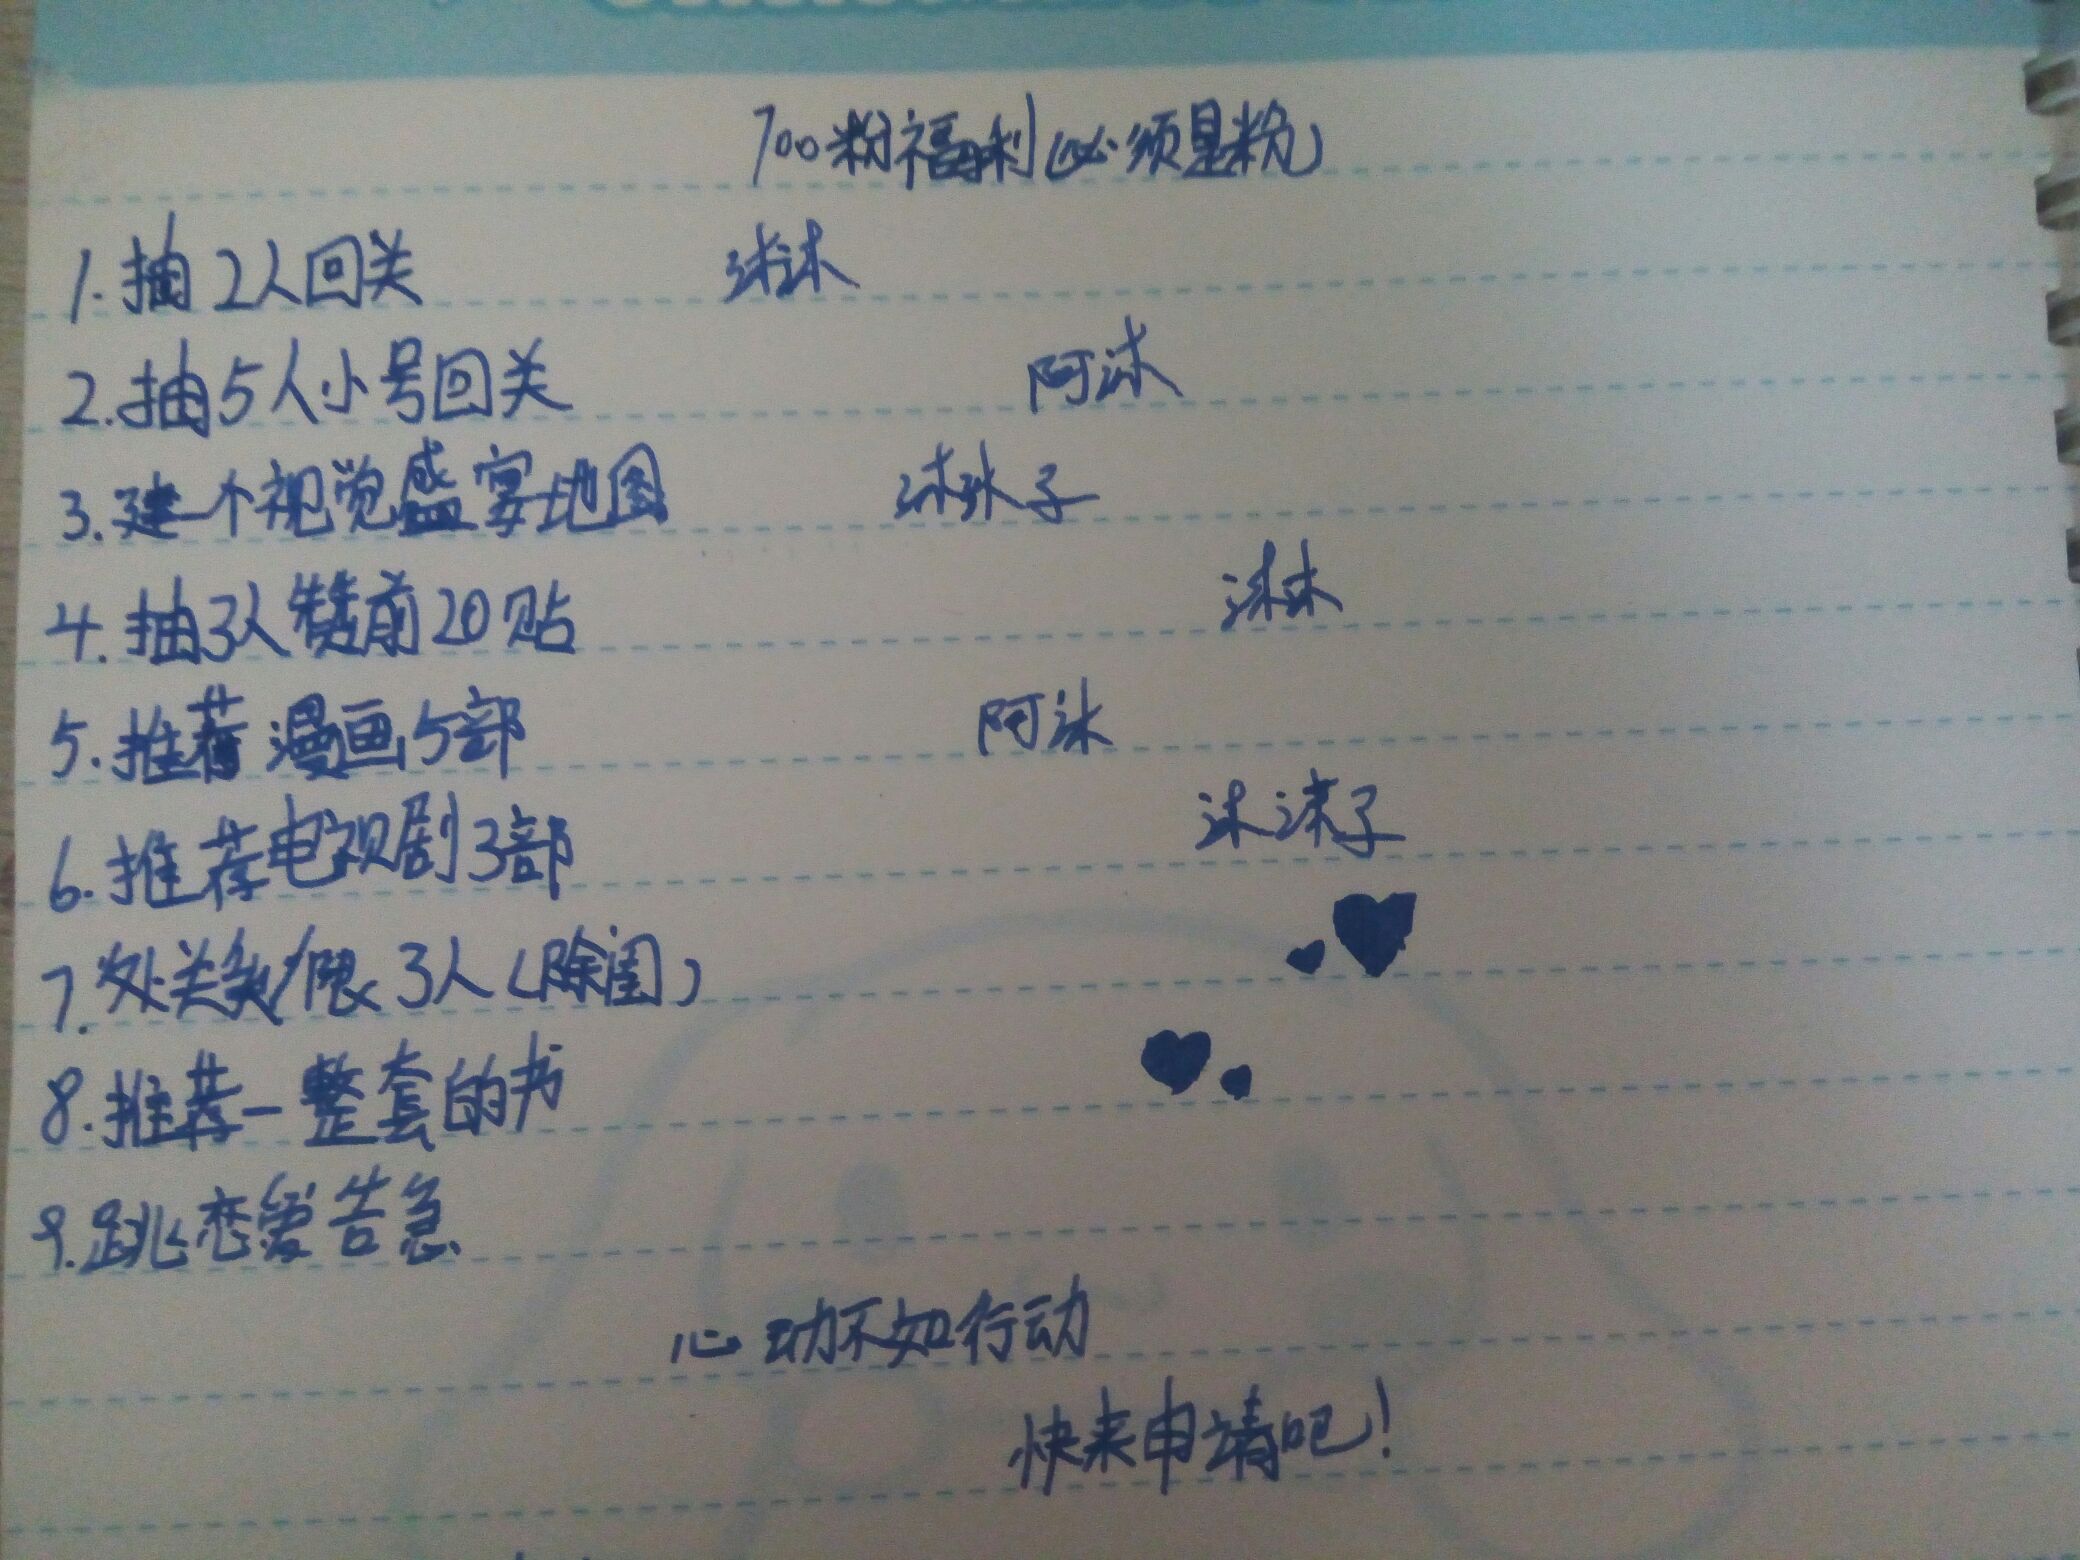 700粉福利(必须是粉)
1.抽2人回关 沐沐
2.抽5人小号回关 阿沐
3.建一个视觉盛宴地图 沐沐子
4.抽3人赞前20贴 沐沐
5.推荐漫画5部 阿沐
6.推荐电视剧3部 沐沐子
7.处关系/限3人(除闺)
8.推荐一整套的书
9.跳恋爱告急
心动不如行动
快来申请吧!